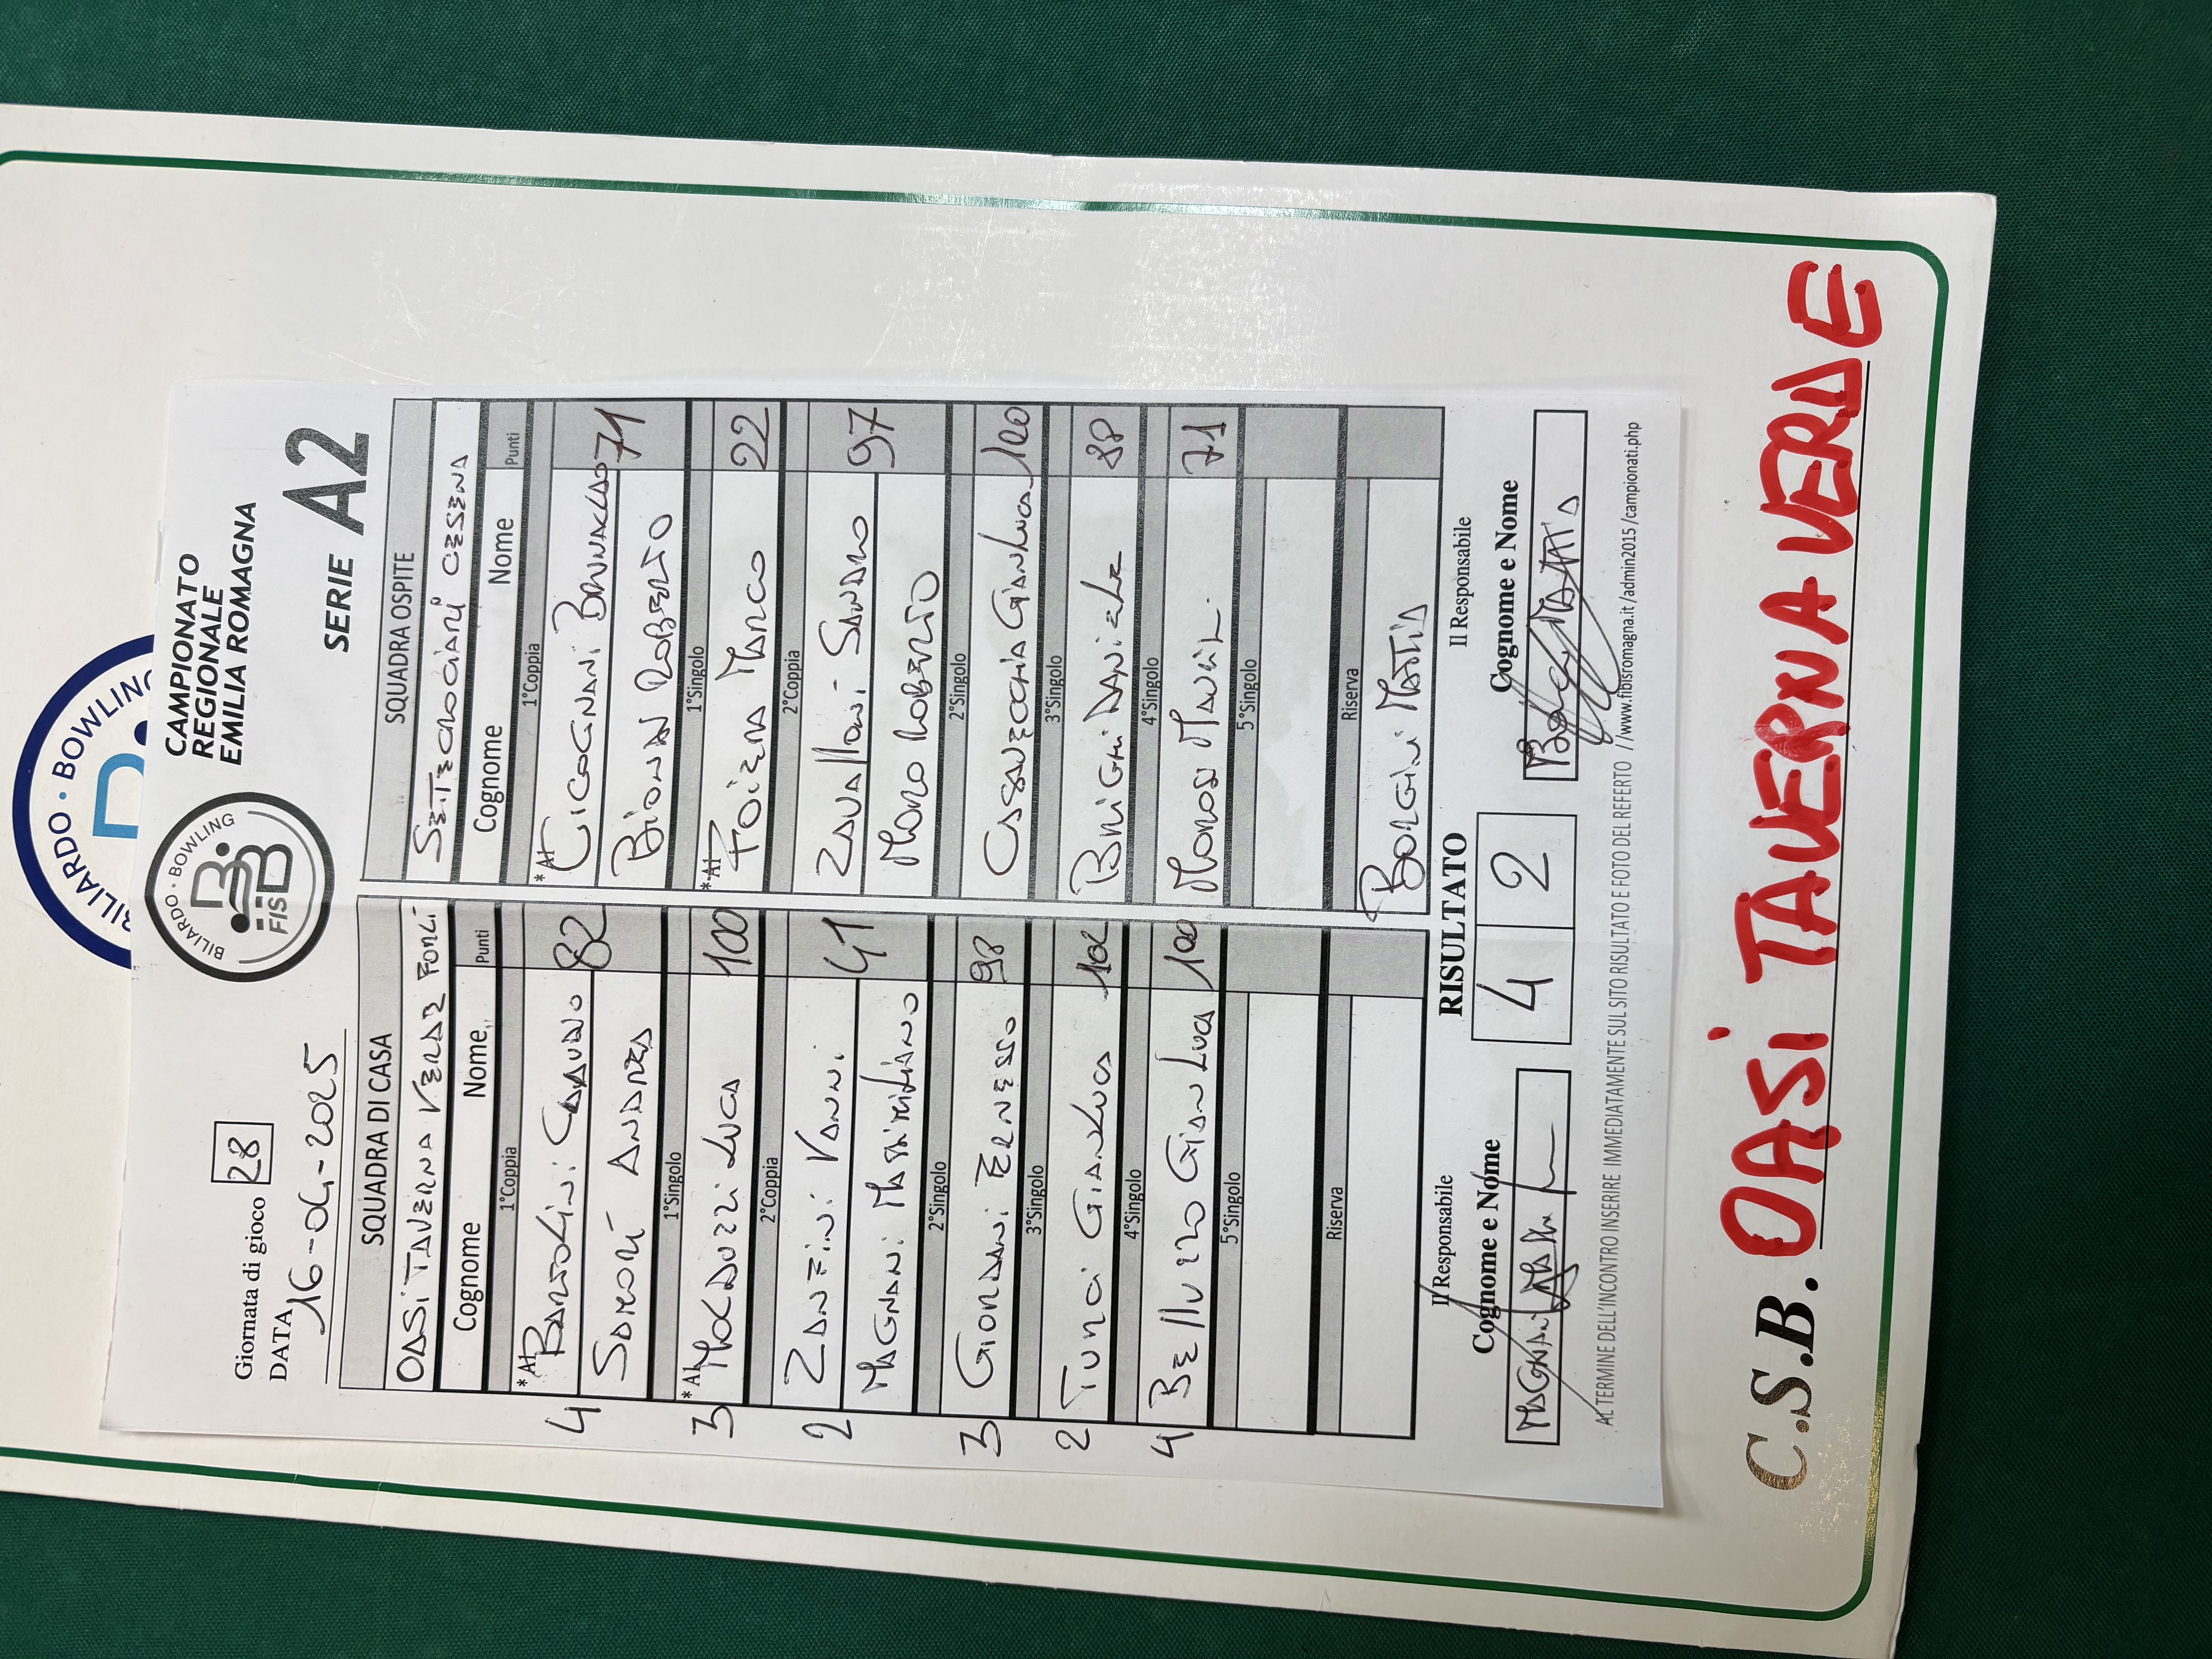 BILIARDO · BOWLING
BILIARDO · BOWLING
FISBB
CAMPIONATO
REGIONALE
EMILIA ROMAGNA
Giornata di gioco 28
DATA 16-04-2025
SERIE A2
SQUADRA DI CASA SQUADRA OSPITE
OASI TAVERNA VERDE FORLÌ SETTECROCIARI CESENA
Cognome Nome Punti Cognome Nome Punti
1°Coppia 1°Coppia
4 *A1 82 *A1 CICOGNANI 71
SAMORÌ ANDREA BIONDI ROBERTO
1°Singolo 1°Singolo
3 *A1 LUCA 100 *A1 FOIERA MARCO 22
2°Coppia 2°Coppia
2 ZANFINI VANNI 41 ZAVALLONI SANDRO 97
MAGNANI MASSIMILIANO MORO ROBERTO
2°Singolo 2°Singolo
3 GIORDANI 98 CASAVECCHIA GIANLUCA 100
3°Singolo 3°Singolo
2 TURCI GIANLUCA 102 BRIGHI DANIELE 88
4°Singolo 4°Singolo
4 BELLUZZO GIANLUCA 100 71
5°Singolo 5°Singolo
Riserva Riserva
BORGINI MATTIA
Il Responsabile RISULTATO Il Responsabile
Cognome e Nome 4 2 Cognome e Nome
AL TERMINE DELL'INCONTRO INSERIRE IMMEDIATAMENTE SUL SITO RISULTATO E FOTO DEL REFERTO //www.fibisromagna.it /admin2015 /campionati.php
C.S.B. OASI TAVERNA VERDE